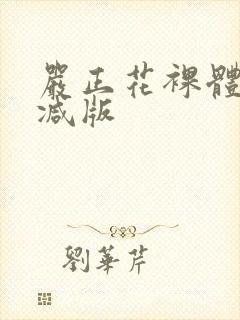 嚴正花裸體
減版
劉華芹